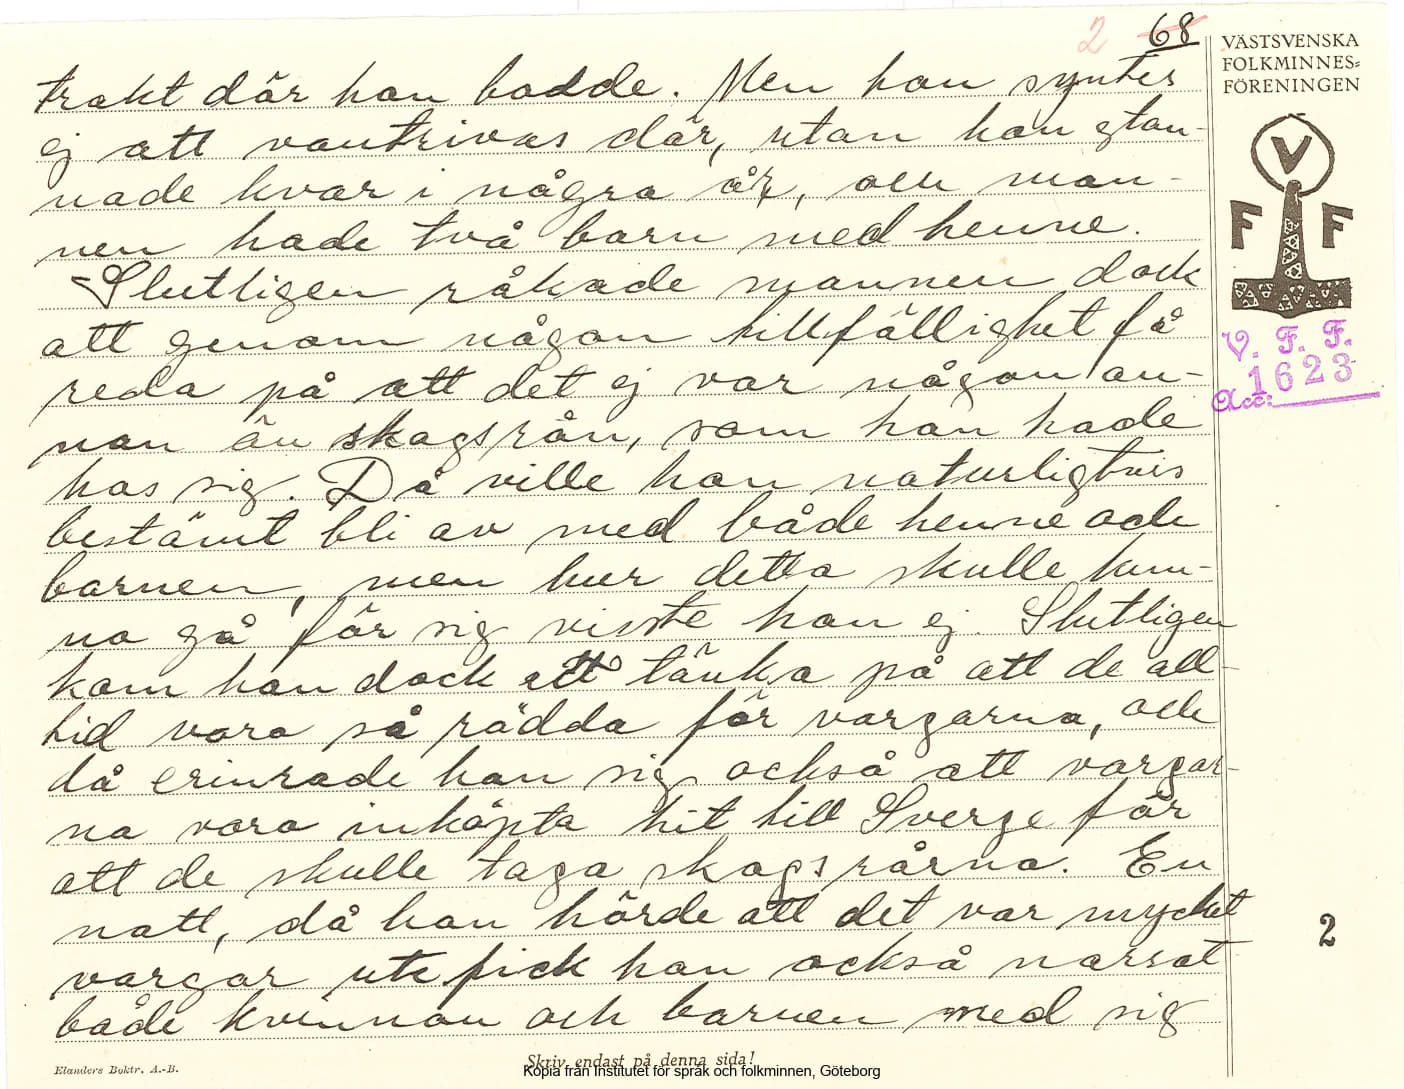 2 68
VÄSTSVENSKA
FOLKMINNES=
FÖRENINGEN
trakt där han bodde. Men hon syntes
ej att vantrivas där, utan hon stan-
nade kvar i några år, och man-
nen hade två barn med henne.
Slutligen råkade mannen dock
att genom någon tillfällighet få
reda på att det ej var någon an-
nan än skogsrån, som han hade
hos sig. Då ville han naturligtvis
bestämt bli av med både henne och
barnen, men hur detta skulle kun-
na gå för sig visste han ej. Slutligen
kom han dock att tänka på att de all-
tid voro så rädda för vargarna, och
då erinrade han sig också att vargar-
na voro inköpta hit till Sverge för
att de skulle taga skogsrårna. En
natt, då han hörde att det var mycket
vargar ute fick han också narrat
både kvinnan och barnen med sig
V
F F
V. F. F.
Acc: 1623
2
Elanders Boktr. A.-B.
Skriv endast på denna sida!
Kopia från Institutet för språk och folkminnen, Göteborg